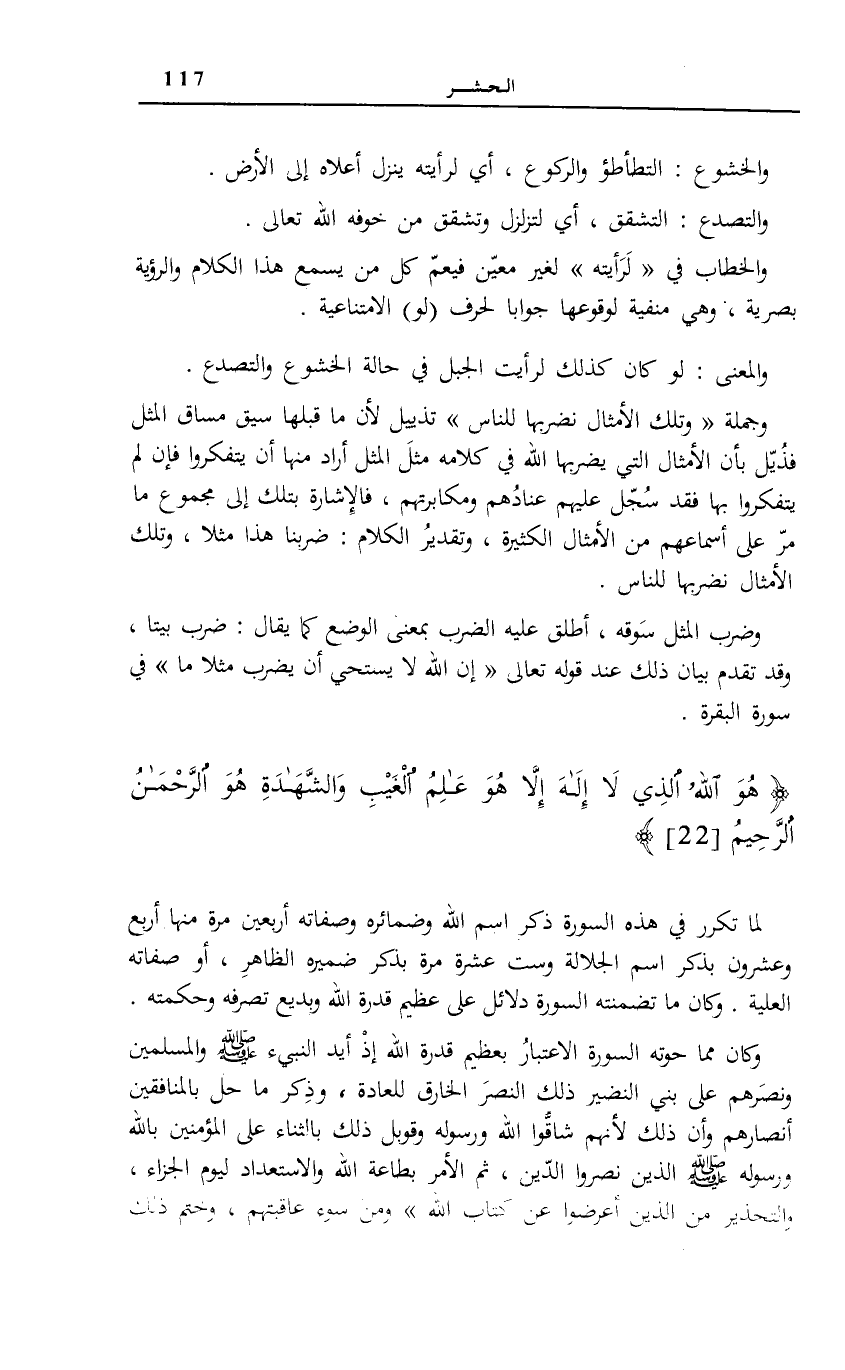 117
الحشر
والخشوع : التطأطؤ والركوع ، أي لرأيته ينزل أعلاه إلى الأرض .
والتصدع : التشقق ، أي لتزلزل وتشقق من خوفه الله تعالى .
والخطاب في « لَرَأيته » لغير معيّن فيعمّ كل من يسمع هذا الكلام والرؤية
بصرية ، وهي منفية لوقوعها جوابا لحرف (لو) الامتناعية .
والمعنى : لو كان كذلك لرأيت الجبل في حالة الخشوع والتصدع .
وجملة « وتلك الأمثال نضربها للناس » تذييل لأن ما قبلها سيق مساق المثل
فذُيّل بأن الأمثال التي يضربها الله في كلامه مثلَ المثل أراد منها أن يتفكروا فإن لم
يتفكروا بها فقد سُجّل عليهم عنادُهم ومكابرتهم ، فالإشارة بتلك إلى مجموع ما
مرّ على أسماعهم من الأمثال الكثيرة ، وتقديرُ الكلام : ضربنا هذا مثلا ، وتلك
الأمثال نضربها للناس .
وضرب المثل سَوقه ، أطلق عليه الضرب بمعنى الوضع كما يقال : ضرب بيتا ،
وقد تقدم بيان ذلك عند قوله تعالى « إن الله لا يستحي أن يضرب مثلا ما » في
سورة البقرة .
﴿ هُوَ ٱللهُ ٱلذِي لَا إِلَـٰهَ إِلَّا هُوَ عَـٰلِمُ ٱلْغَيْبِ وَالشَّهَـٰدَةِ هُوَ ٱلرَّحْمَـٰنُ
ٱلرَّحِيمُ [22] ﴾
لما تكرر في هذه السورة ذكر اسم الله وضمائره وصفاته أربعين مرة منها أربع
وعشرون بذكر اسم الجلالة وست عشرة مرة بذكر ضميره الظاهرِ ، أو صفاته
العلية . وكان ما تضمنته السورة دلائل على عظيم قدرة الله وبديع تصرفه وحكمته .
وكان مما حوته السورة الاعتبارُ بعظيم قدرة الله إذْ أيد النبيء ﷺ والمسلمين
ونصَرهم على بني النضير ذلك النصرَ الخارق للعادة ، وذِكر ما حل بالمنافقين
أنصارهم وأن ذلك لأنهم شاقُّوا الله ورسوله وقوبل ذلك بالثناء على المؤمنين بالله
ورسوله ﷺ الذين نصروا الدّين ، ثم الأمر بطاعة الله والاستعداد ليوم الجزاء ،
والتحذير من الذين أعرضوا عن كتاب الله » ومن سوء عاقبتهم ، وختم ذلك